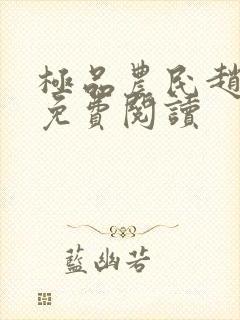 極品農民趙
免費閱讀
藍幽若